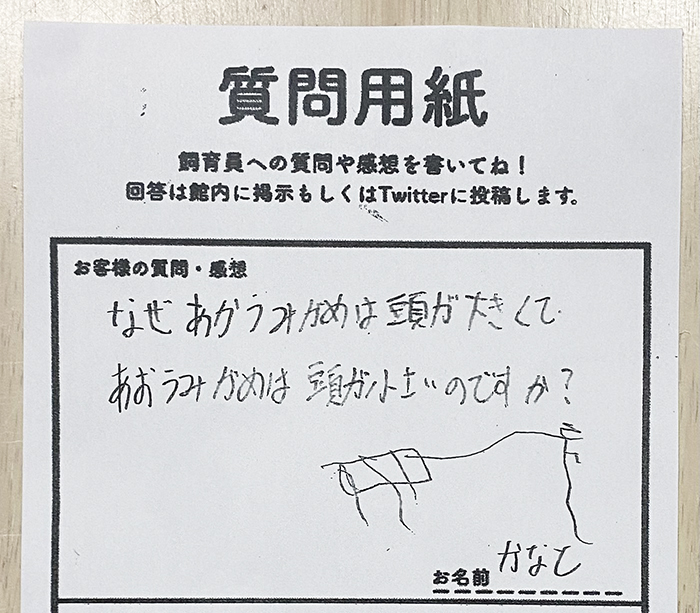 質問用紙
飼育員への質問や感想を書いてね！
回答は館内に掲示もしくはTwitterに投稿します。
お客様の質問・感想
なぜあかうみがめは頭が大きくて
あおうみがめは頭が小さいのですか？
お名前 かなと